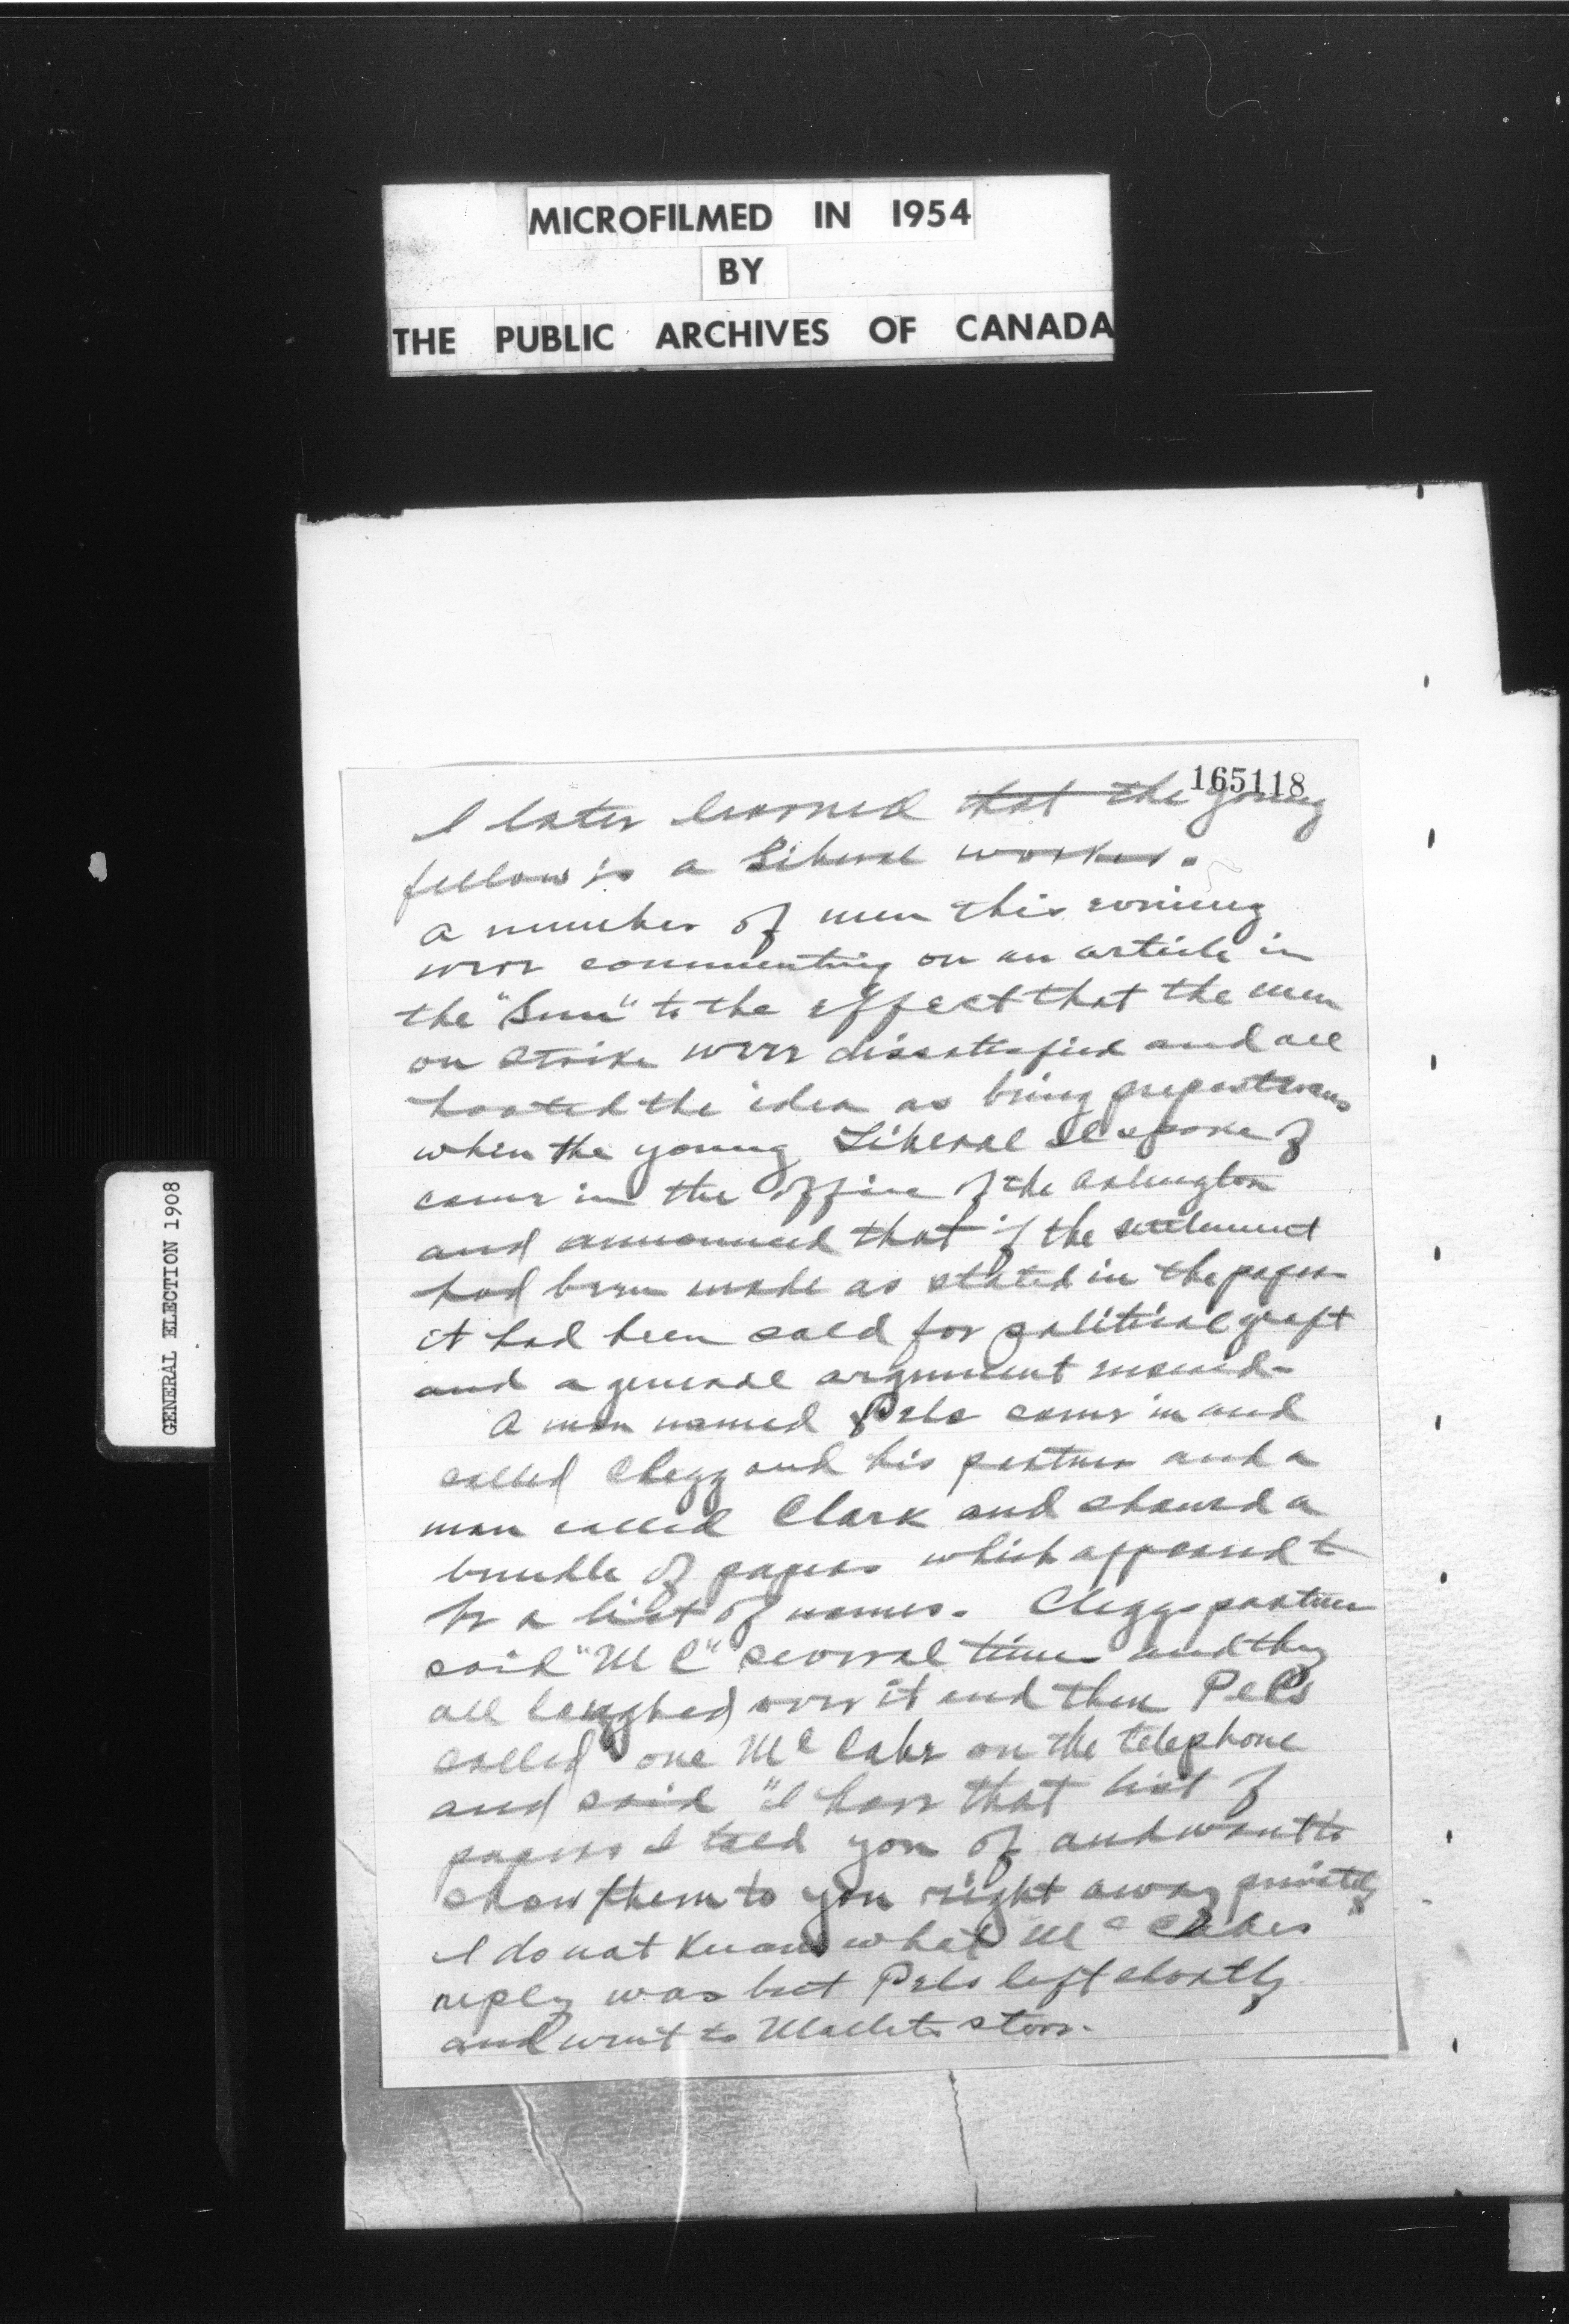 MICROFILMED IN 1954
BY
THE PUBLIC ARCHIVES OF CANADA
GENERAL ELECTION 1908
165118
I later learned that the young
fellow is a Liberal worker.
A number of men this evening
were commenting on an article in
the "Sun" to the effect that the men
on strike were dissatisfied and all
hooted the idea as being preposterous
when the young Liberal I spoke of
came in the office of the Arlington
and announced that if the settlement
had been made as stated in the paper
it had been sold for political graft
and a general argument ensued-
A man named Pels came in and
called Clegg and his partner and a
man called Clark and showed a
bundle of papers which appeared to
be a list of names. Cleggs partner
said "Mc" several times and they
all laughed over it and then Pels
called one McCabe on the telephone
and said "I have that list of
papers I told you of and want to
show them to you right away privately
I do not know what McCabes
reply was but Pels left shortly
and went to store.